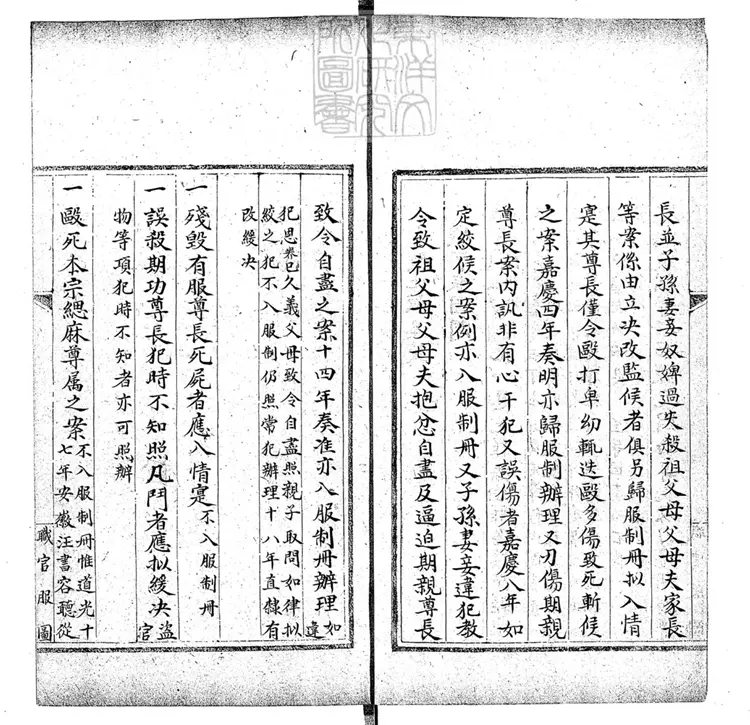 長並子孫妻妾奴婢過失殺祖父母父母夫家長
等案係由立決改監候者俱另歸服制冊擬入情
寔其尊長僅令毆打卑幼輒迭毆多傷致死斬候
之案嘉慶四年奏明亦歸服制辦理又刃傷期親
尊長案內訊非有心干犯又誤傷者嘉慶八年如
定絞候之案例亦入服制冊又子孫妻妾違犯教
令致祖父母父母夫抱忿自盡及逼迫期親尊長
致令自盡之案十四年奏准亦入服制冊辦理如違
犯恩養已久義父母致令自盡照親子取問如律擬
絞之犯不入服制仍照常犯辦理十八年直隸有
改緩決
一殘毀有服尊長死屍者應入情寔不入服制冊
一誤殺期功尊長犯時不知照凡鬥者應擬緩決盜官
物等項犯時不知者亦可照辦
一毆死本宗緦麻尊属之案不入服制冊惟道光十
七年安徽汪書容聽從
職官服圖
東洋文化研究所圖書